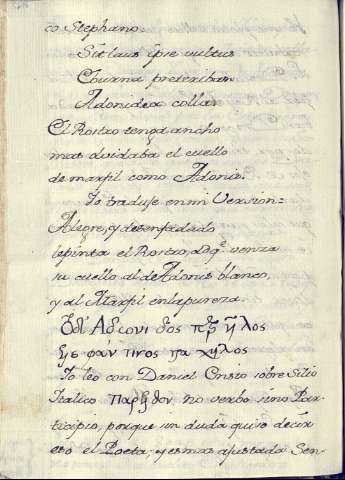 co Stephano.
Sit laus ipse vultus
Eburna preteribat
Adonidea colla.
El Rostro tenga ancho
mas olvidaba el cuello
de marfil como Adonis.
Io traduje en mi Version=
Alegre, y desenfadado
le pinta el Rostro, aq.e venza
su cuello al de Adonis blanco,
y al Marfil en la pureza.
Io leo con Daniel Ensio sobre Silio
Italico Παρῆλθον no verbo sino Par-
ticipio, porque sin duda quiso decir
esto el Poeta; y es mas ajustada Sen-